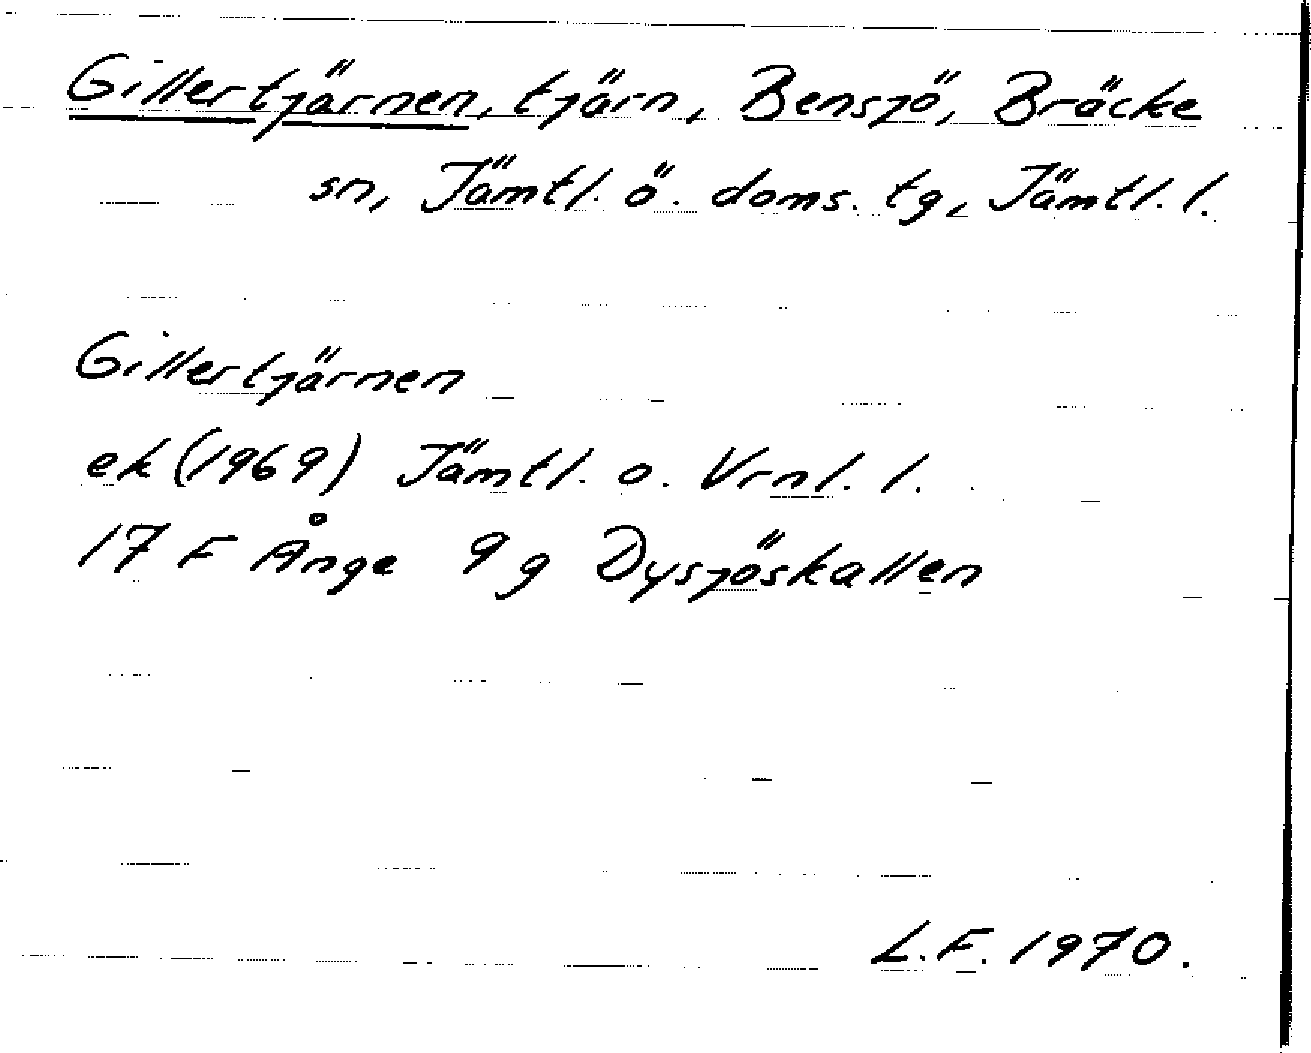 Gillertjärnen, tjärn, Bensjö, Bräcke
sn, Jämtl. ö. doms. tg, Jämtl. l.
Gillertjärnen
ek (1969) Jämtl. o. Vrnl. l.
17 F Ånge 9g Dysjöskallen
L.F. 1970.